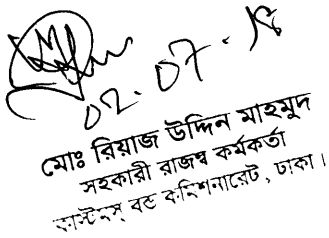 ০২.০৭.১৫
মোঃ রিয়াজ উদ্দিন মাহমুদ
সহকারী রাজস্ব কর্মকর্তা
কাস্টমস্ বন্ড কমিশনারেট, ঢাকা।